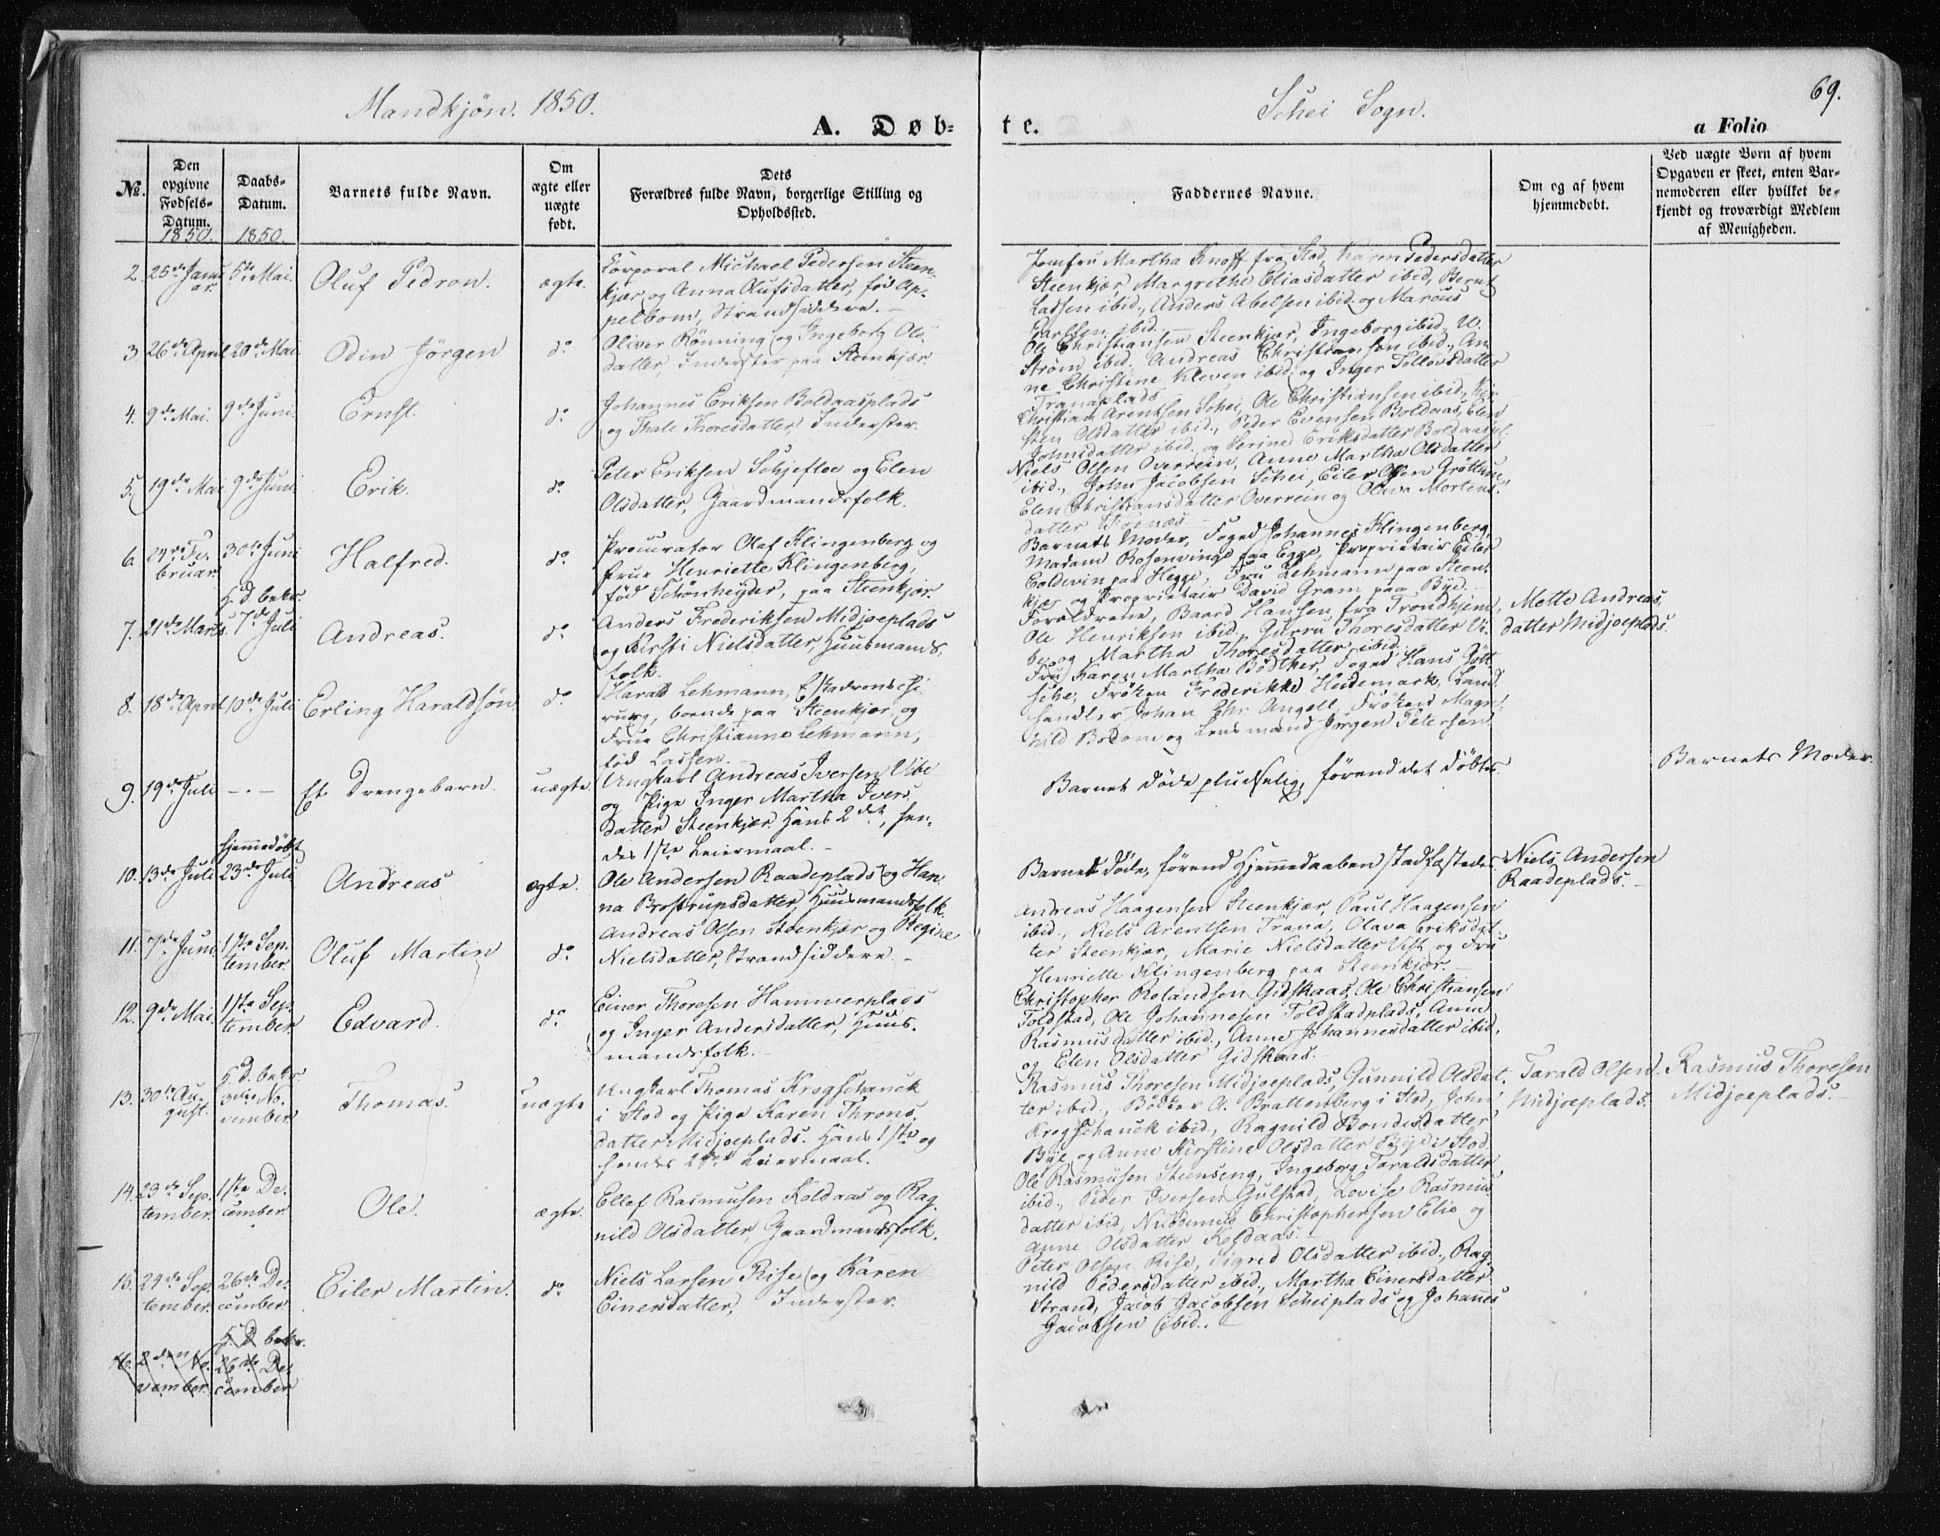 Mandkjøn. 1850.
Schei Sogn.
69.
A. Døb-
te.
a Folio
№.
Den
opgivne
Fødsels-
Datum.
1850.
Daabs-
Datum.
1850.
Barnets fulde Navn.
Om
ægte eller
uægte
født.
Dets
Forældres fulde Navn, borgerlige Stilling og
Opholdssted.
Faddernes Navne.
Om og af hvem
hjemmedøbt.
Ved uægte Børn af hvem
Opgaven er skeet, enten Bar-
nemoderen eller hvilket be-
kjendt og troværdigt Medlem
af Menigheden.
2.
25de Janu-
ar.
5te Mai.
Oluf Pedron.
ægte.
Corporal Michael Pedersen Steen-
kjær og Anna Olufsdatter, fød Ap-
pelbom, Strandsiddere.
Jomfru Martha Knoff fra Stod, Karen Pedersdatter
Steenkjær, Margrethe Eliasdatter ibid, Bernt
Lassen ibid., Anders Abelsen ibid. og Marcus
Carlsen ibid.
3
26de April
20de Mai.
Odin Jörgen
do
Oliver Rönning og Ingeborg Ols-
datter, Inderster paa Steenkjær.
Ole Christiansen Steenkjær, Ingeborg ibid, U.
Strøm ibid. Andreas Christiansen ibid., An-
ne Christine Kleven ibid. og Inger Tollövsdatter
Tranaplads.
4.
9de Mai.
9de Juni.
Ernst.
do
Johannes Eriksen Boldaasplads
og Thale Thoresdatter, Inderster.
Christian Arentsen Schei, Ole Christiansen ibid, Kir-
sten Olsdatter ibid., Peder Evensen Boldaas, Elen
Johnsdatter ibid. og Serine Eriksdatter Boldaaspl.
5.
19de Mai
9de Juni
Erik.
do
Peter Eriksen Schjefloe og Elen
Olsdatter, Gaardmandsfolk.
Niels Olsen Overrein, Anne Martha Olsdatter
ibid., John Jacobsen Schei, Eiler Olsen Gröttum,
Elen Christiansdatter Overrein og Olava Mortens-
datter Fornæs.
6.
24de Fe-
bruar.
30te Juni
Halfred.
do
Procurator Olaf Klingenberg og
frue Henriette Klingenberg,
fød Schönheyder, paa Steenkjær.
Barnets Moder, Foged Johannes Klingenberg,
Madam Rosenvinge paa Egge, Proprietair Eiler
Coldevin paa Hegge, Fru Lehmann paa Steen-
kjær og Proprietair David Gram paa Bÿe.
7.
21de Marts.
H. d. bekr.
7de Juli
Andreas.
do
Anders Frederiksen Midjoeplads
og Kirsti Nielsdatter, Huusmands-
folk.
Forældrene, Baard Hansen fra Trondhjem,
Ole Henriksen ibid, Gurru Thoresdatter Vi-
be og Martha Thoresdatter ibid.
Mette Andreas-
datter Midjoeplads.
8.
18de April
10de Juli
Erling Haraldsön
do
Harald Lehmann, Eskadronschi-
rurg, boende paa Steenkjær, og
Frue Christianne Lehmann,
fød Lassen.
Fru Karen Martha Bödtker, Foged Hans Gött-
sche, Frøken Frederikke Heidemark, Land-
handler Johan Chr. Angell, Frøken Mag-
nild Bodom og Lensmand Jørgen Petersen.
9.
19de Juli
- . -
Et Drengebarn.
uægte.
Ungkarl Andreas Iversen Vibe
og Pige Inger Martha Ivers-
datter Steenkjær. Hans 2det, hen-
des 1ste Leiermaal.
Barnet døde pludselig, førend det døbtes.
Barnets Moder.
10.
13de Juli
Hjemmedøbt
23de Juli
Andreas
ægte.
Ole Andersen Raadeplads og Han-
na Brostrupsdatter, Huusmandsfolk.
Barnet døde, førend Hjemmedaaben stadfæstedes.
Niels Andersen
Raadeplads.
11.
7de Juni
1ste Sep-
tember.
Oluf Martin
do
Andreas Olsen Steenkjær og Regine
Nielsdatter, Strandsiddere.
Andreas Haagensen Steenkjær, Paul Haagensen
ibid., Niels Arentsen Trana, Olava Eriksdat-
ter Steenkjær, Marie Nielsdatter Vist og Fru
Henriette Klingenberg paa Steenkjær.
12.
9de Mai.
1ste Sep-
tember
Edvard.
do
Einer Thoresen Hammerplads
og Inger Andersdatter, Huus-
mandsfolk.
Christopher Rolandsen Gidskaas, Ole Christiansen
Foldstad, Ole Johannesen Foldstadplads, Anne
Rasmusdatter ibid., Anne Johannesdatter ibid,
og Elen Olsdatter Gidskaas.
13.
30te Au-
gust.
H. D. bekr.
3die No-
vember
Thomas.
uægte
Ungkarl Thomas Krogschanck
i Stod og Pige Karen Throns-
datter Midjoeplads. Hans 1ste og
hendes 2det Leiermaal.
Rasmus Thoresen Midjoeplads, Gunnild Olsdat-
ter ibid., Bödker A. Brattenberg i Stod, John
Krogschanck ibid., Ragnild Bondesdatter
Bÿe og Anne Kirstine Olsdatter Bÿe i Stod
Tarald Olsen
Midjoeplads.
Rasmus Thoresen
Midjoeplads.
14.
23de Sep-
tember.
1ste De-
cember
Ole.
ægte.
Ellef Rasmusen Koldaas og Rag-
nild Olsdatter, Gaardmandsfolk.
Ole Rasmusen Steenseng, Ingeborg Taraldsdatter
ibid., Peder Iversen Gulstad, Lovise Rasmus-
datter ibid, Christophersen Elie og
Anne Olsdatter Koldaas.
15.
24de Sep-
tember.
26de De-
cember
Eiler Martin.
do
Niels Larsen Rise og Karen
Einersdatter, Inderster.
Peter Olsen Rise, Sigrid Olsdatter ibid., Rag-
nild Pedersdatter ibid., Martha Einersdatter
Strand, Jacob Jacobsen Scheiplads og Johannes
Jacobsen ibid.
16.
2den No-
vember.
H. D. bekr.
26de De-
cember